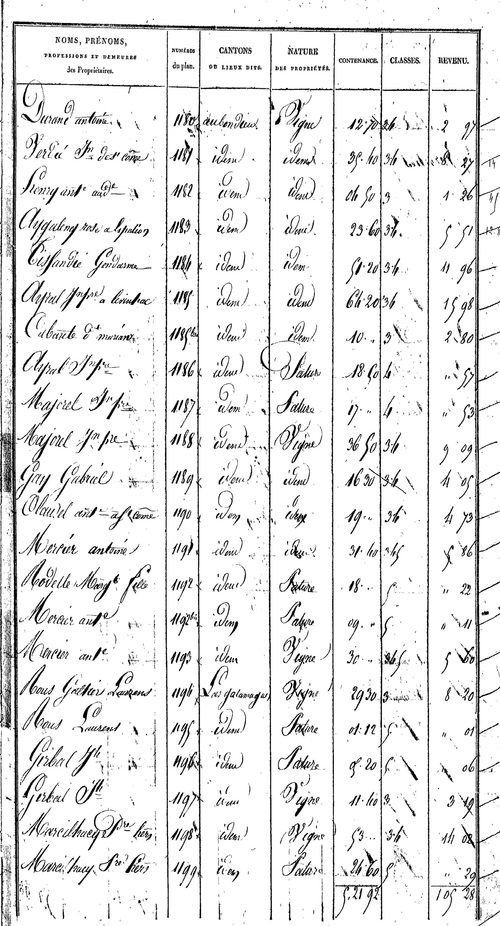 NOMS, PRÉNOMS, PROFESSIONS ET DEMEURES des Propriétaires. NUMÉROS du plan. CANTONS OU LIEUX DITS. NATURE DES PROPRIÉTÉS. CONTENANCE. CLASSES. REVENU.
Durand antoine 1180 Vigne 12 70 34 2 97
1181 idem idem 35 40 34 8 27
1182 idem idem 04 50 3 1 26
Aygaleng rose a 1183 idem idem 23 60 34 5 51
Tissandié Gendarme 1184 idem idem 51 20 34 11 96
Aspal Jn pre a 1185 idem idem 64 20 34 15 98
Cabanté 1185bis idem idem 10 " 3 2 80
Aspal Jn pre 1186 idem Pature 18 50 4 " 57
Majorel Jn pre 1187 idem Pature 17 " 4 " 53
Majorel Jn pre 1188 idem Vigne 36 50 34 9 09
Gay Gabriel 1189 idem idem 16 30 34 4 05
Claudel ant 1190 idem idem 19 " 34 4 73
Mercier antoine 1191 idem idem 31 40 345 5 86
Novelle Margte fille 1192 idem Pature 18 " 5 " 22
Mercier ant 1192bis idem Pature 09 " 5 " 11
Mercier ant 1193 idem Vigne 30 " 345 5 60
Rous Galtier Laurens 1194 Las galamages Vigne 29 30 3 8 20
Rous Laurens 1195 idem Pature 01 12 5 " 01
Gerbal Jh 1196 idem Pature 05 20 5 " 06
Gerbal Jh 1197 idem Vigne 11 40 3 3 19
Marcilhacy Pre 1198 idem Vigne 53 " 34 14 08
Marcilhacy Pre 1199 idem Pature 24 60 5 " 29
5 21 92 105 28